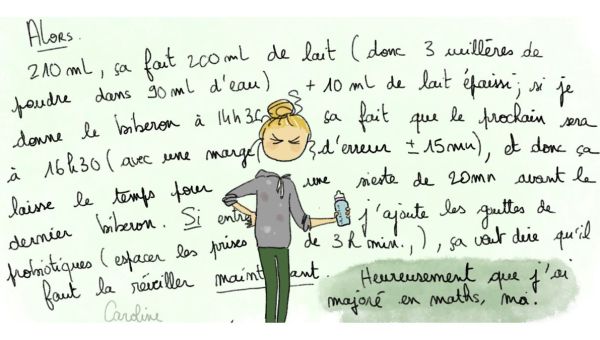 Alors.
210 mL, ça fait 200 mL de lait (donc 3 cuillères de
poudre dans 90 mL d'eau) + 10 mL de lait épaissi; si je
donne le biberon à 14h30 ça fait que le prochain sera
à 16h30 (avec une marge d'erreur ± 15mn), et donc ça
laisse le temps pour une sieste de 20mn avant le
dernier biberon. Si entre j'ajoute les gouttes de
probiotiques (espacer les prises de 3h min.,), ça veut dire qu'il
faut la réveiller maintenant. Heureusement que j'ai
majoré en maths, moi.
Caroline